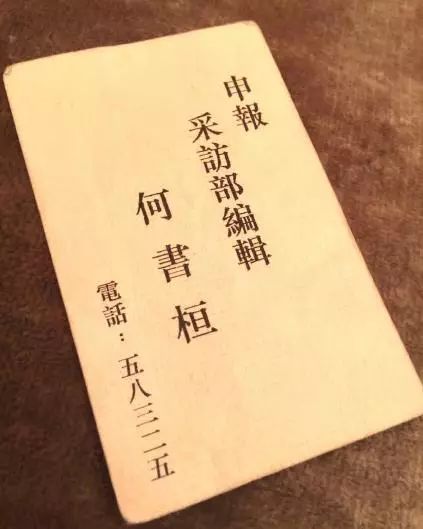 申報
采訪部編輯
何書桓
電話：五八三二五